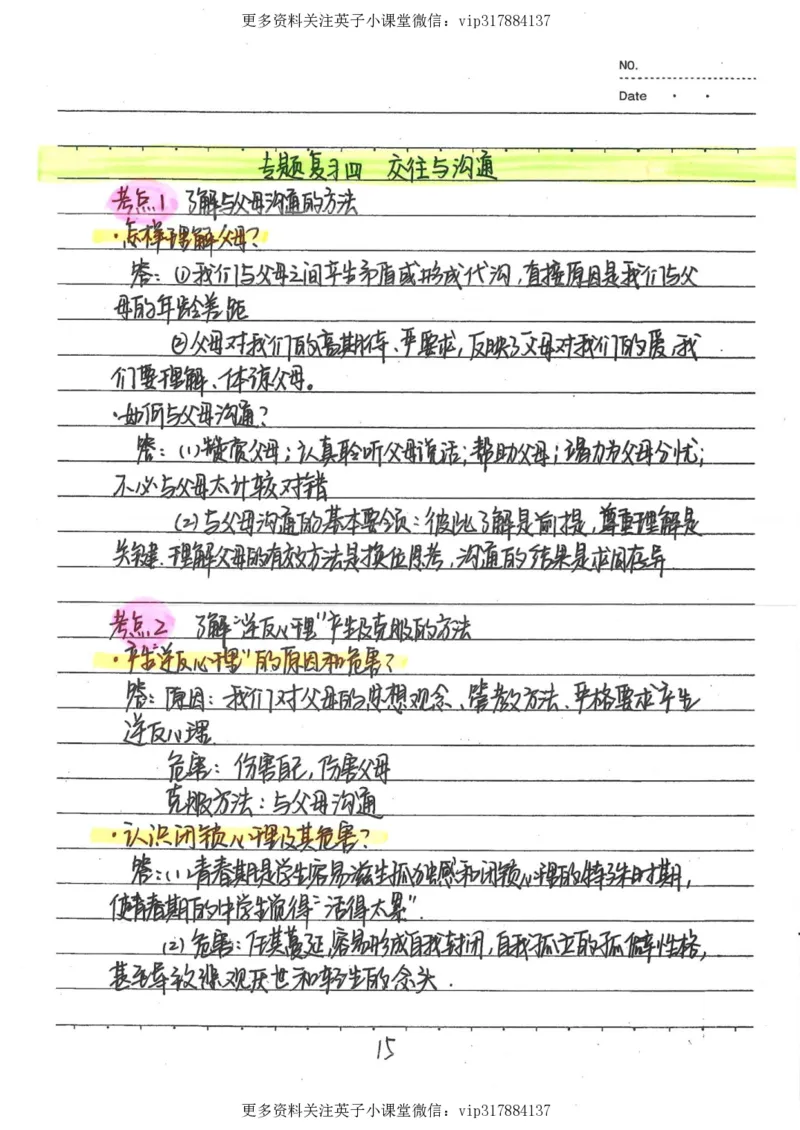 更多资料关注英子小课堂微信：vip317884137
NO.
Date
专题复习四 交往与沟通
考点1 了解与父母沟通的方法
·怎样理解父母？
答：①我们与父母之间产生矛盾或形成代沟，直接原因是我们与父
母的年龄差距
②父母对我们的高期待、严要求，反映了父母对我们的爱，我
们要理解、体谅父母。
·如何与父母沟通？
答：(1)赞赏父母；认真聆听父母说话；帮助父母；竭力为父母分忧；
不必与父母太计较对错
(2)与父母沟通的基本要领：彼此了解是前提，尊重理解是
关键．理解父母的有效方法是换位思考，沟通的结果是求同存异
考点2 了解“逆反心理”产生及克服的方法
·产生“逆反心理”的原因和危害？
答：原因：我们对父母的思想观念、管教方法、严格要求产生
逆反心理．
危害：伤害自己，伤害父母
克服方法：与父母沟通
·认识闭锁心理及其危害？
答：(1)青春期是学生容易滋生孤独感和闭锁心理的特殊时期，
使青春期的中学生觉得“活得太累”．
(2)危害：任其蔓延，容易形成自我封闭，自我孤立的孤僻性格，
甚至导致悲观厌世和轻生的念头．
15
更多资料关注英子小课堂微信：vip317884137